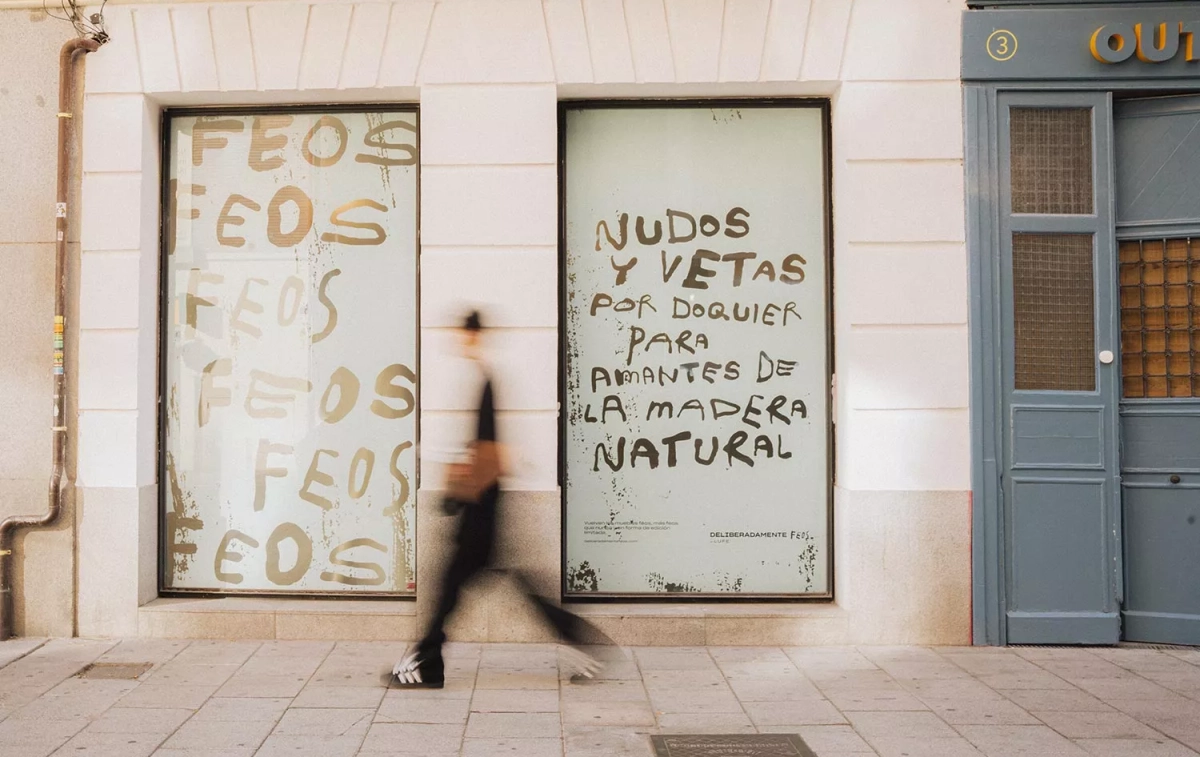 FEOS
FEOS
FEOS
FEOS
FEOS
FEOS
NUDOS
Y VETAS
POR DOQUIER
PARA
AMANTES DE
LA MADERA
NATURAL
DELIBERADAMENTE FEOS
3
OUT